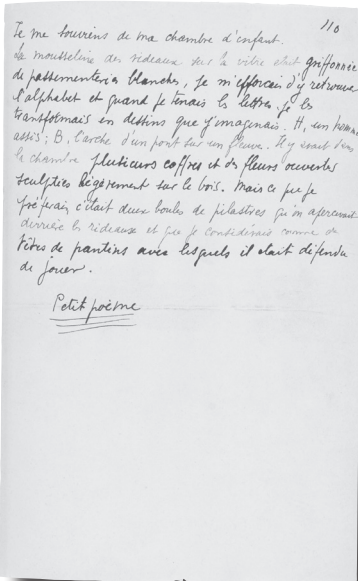 110
Je me souviens de ma chambre d'enfant.
La mousseline des rideaux sur la vitre était griffonnée
de passementeries blanches, je m'efforçais d'y retrouver
l'alphabet et quand je tenais les lettres, je les
transformais en dessins que j'imaginais. H, un homme
assis; B, l'arche d'un pont sur un fleuve. Il y avait dans
la chambre plusieurs coffres et des fleurs ouvertes
sculptées légèrement sur le bois. Mais ce que je
préférais c'était deux boules de pilastres qu'on apercevait
derrière les rideaux et que je considérais comme des
têtes de pantins avec lesquels il était défendu
de jouer.
Petit poème